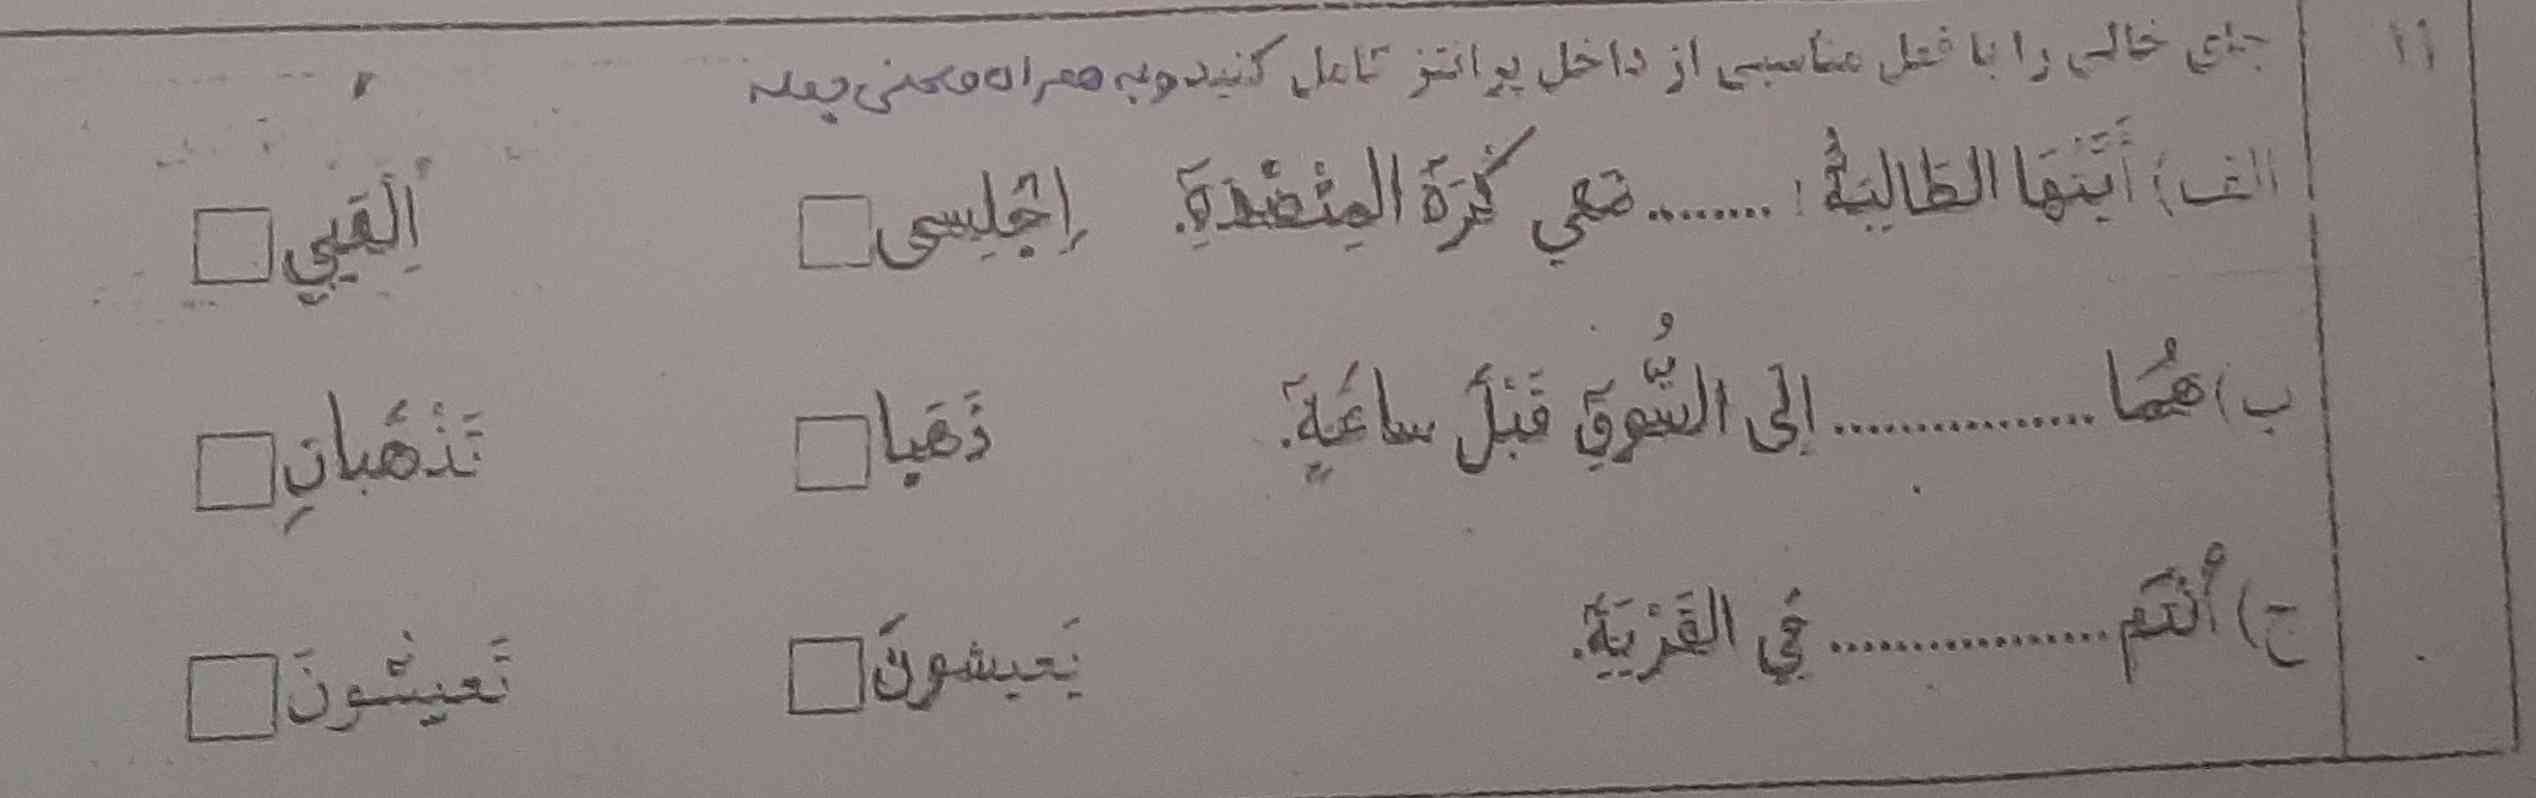 ۱۱ جای خالی را با فعل مناسبی از داخل پرانتز کامل کنید. وبه همراه معنی جمله
الف) أَیَّتُهَا الطّالِبَةُ؛ ........ مَعي کُرَةَ المِنْضَدَةِ. اِجْلِسی □ اِلْعَبي □
ب) هُما ............... إلَی السُّوقِ قَبْلَ ساعَةٍ. ذَهَبا □ تَذْهَبانِ □
ج) أَنْتُم ................ فِي القَرْیَةِ. یَعیشونَ □ تَعیشونَ □